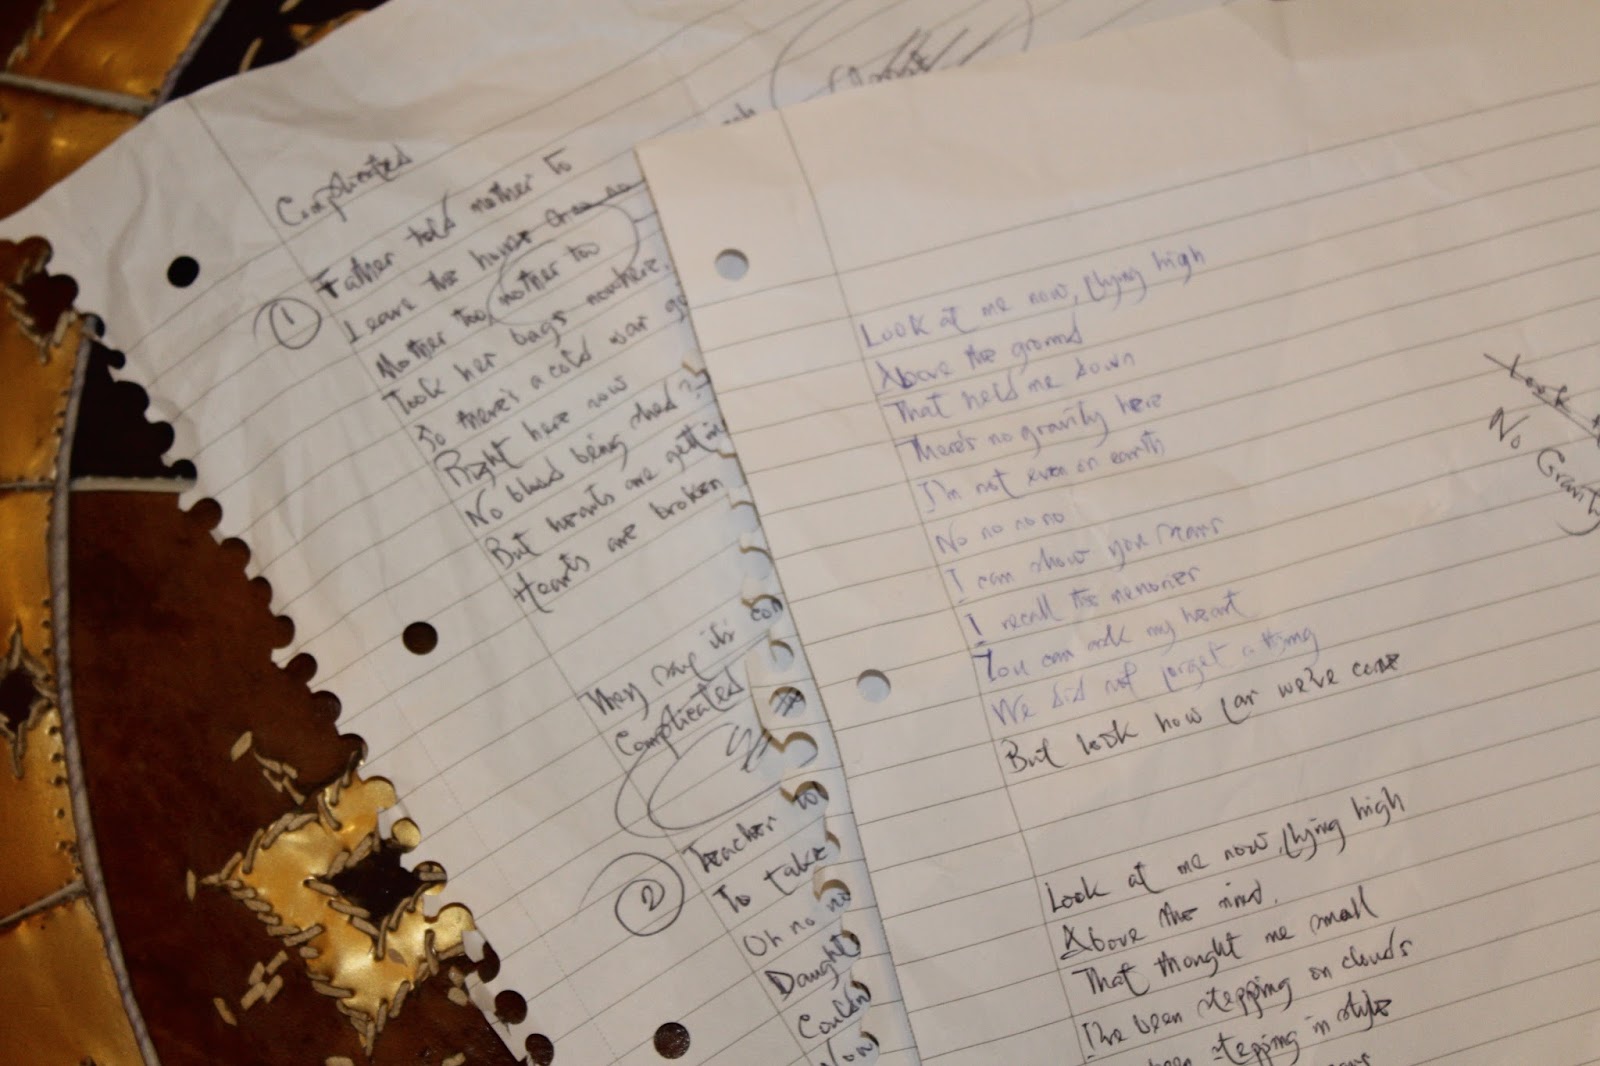 Complicated
1
Father told mother to
Leave the house
Mother too mother too
Took her bags nowhere.
So there's a cold war
Right here now
No blood being shed?
But hearts are
Hearts are broken
They say it's
Complicated
2
Teacher
To take
Oh no no
Look at me now, flying high
Above the ground
That held me down
There's no gravity here
I'm not even on earth
No no no no
I can show you scars
I recall the memories
You can ask my heart
We did not forget a thing
But look how far we've come
Look at me now, flying high
Above the mind.
That thought me small
I've been stepping on clouds
stepping in style
No